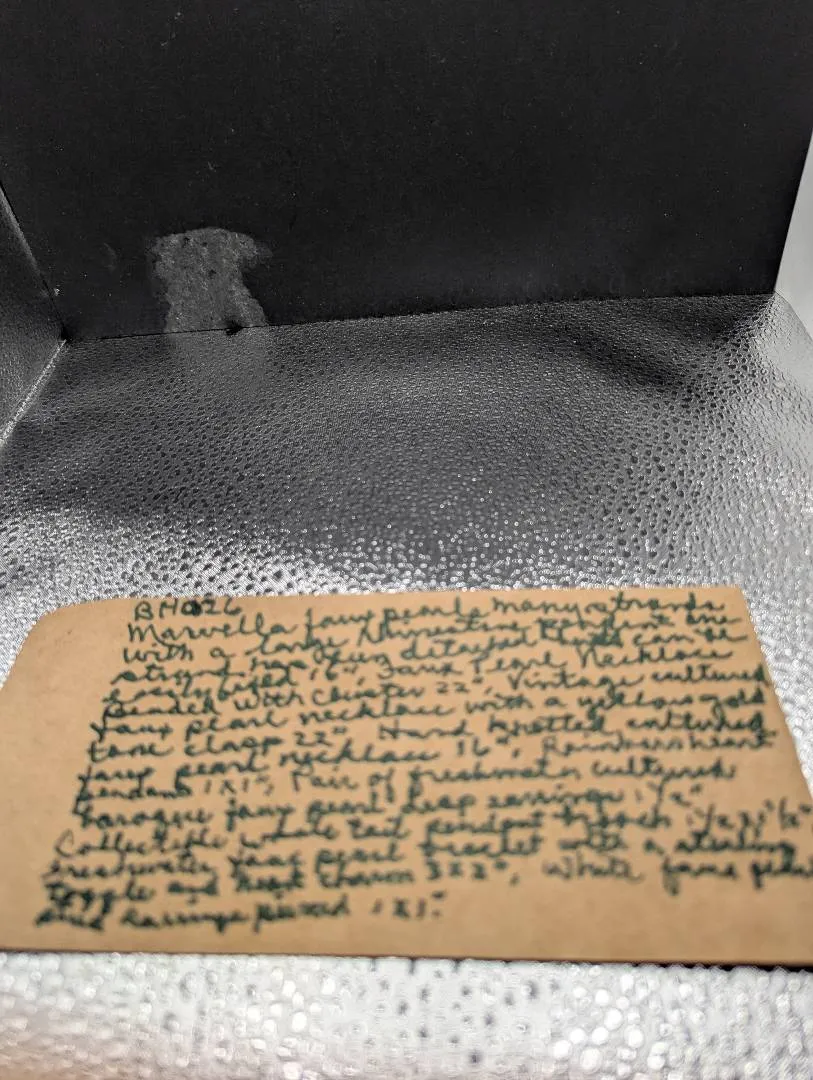 BH026
Marvella faux pearls many strands
with a large pendant one
strand has can be
easily 16", Faux Pearl Necklace
Beaded with cluster 22", Vintage cultured
faux pearl necklace with a yellow gold
tone clasp 22", Hand knotted cultured
faux pearl necklace 16", Rainbow heart
Pendant 1x1", Pair of freshwater cultured
baroque faux pearl drop earrings 1/2"
Collectible whale tail pendant brooch 1/2 x 1 1/2"
freshwater faux pearl bracelet with a sterling
toggle and heart charm 3x2", White faux pearl
stud Earrings pierced 1x1"